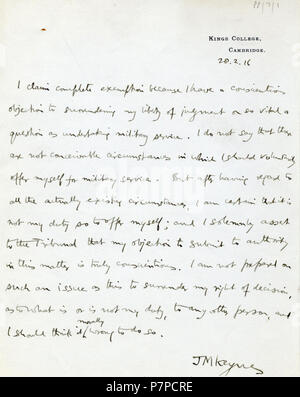 KINGS COLLEGE,
CAMBRIDGE.
28.2.16
I claim complete exemption because I have a conscientious
objection to surrendering my liberty of judgment on so vital a
question as undertaking military service. I do not say that there
are not conceivable circumstances in which I should voluntarily
offer myself for military service. But after having regard to
all the actually existing circumstances, I am certain that it is
not my duty so to offer myself; and I solemnly assert
to the Tribunal that my objection to submit to authority
in this matter is truly conscientious. I am not prepared on
such an issue as this to surrender my right of decision,
as to what is or is not my duty, to any other person, and
I should think it morally wrong to do so.
JMKeynes
alamy
Image ID: P7PCRE
www.alamy.com